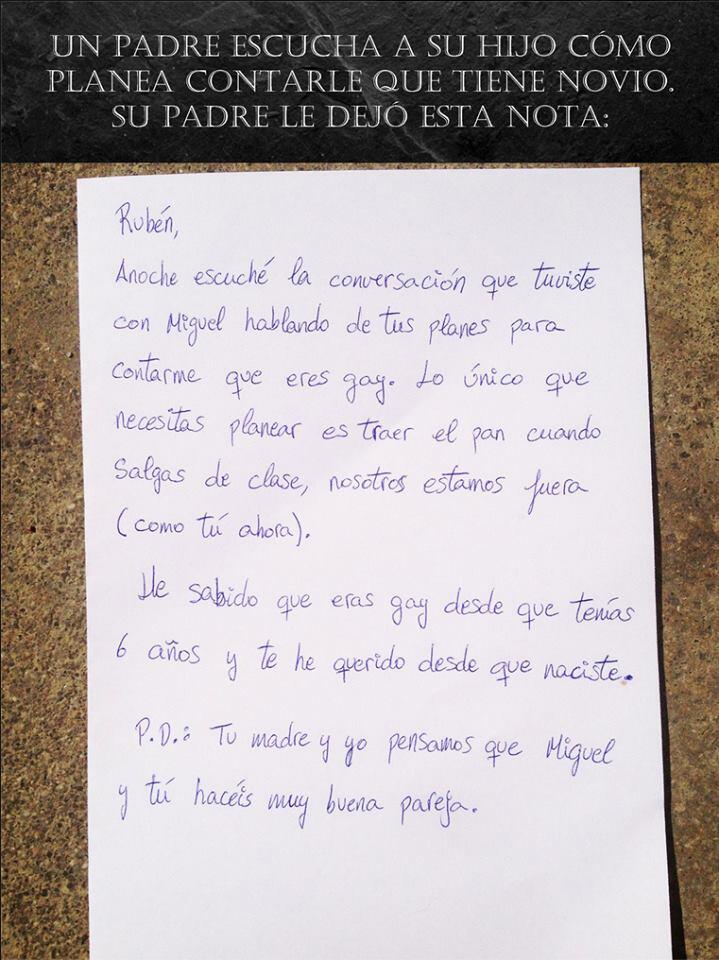 UN PADRE ESCUCHA A SU HIJO CÓMO
PLANEA CONTARLE QUE TIENE NOVIO.
SU PADRE LE DEJÓ ESTA NOTA:
Rubén,
Anoche escuché la conversación que tuviste
con Miguel hablando de tus planes para
contarme que eres gay. Lo único que
necesitas planear es traer el pan cuando
Salgas de clase, nosotros estamos fuera
(como tú ahora).
He sabido que eras gay desde que tenías
6 años y te he querido desde que naciste.
P.D.: Tu madre y yo pensamos que Miguel
y tú hacéis muy buena pareja.